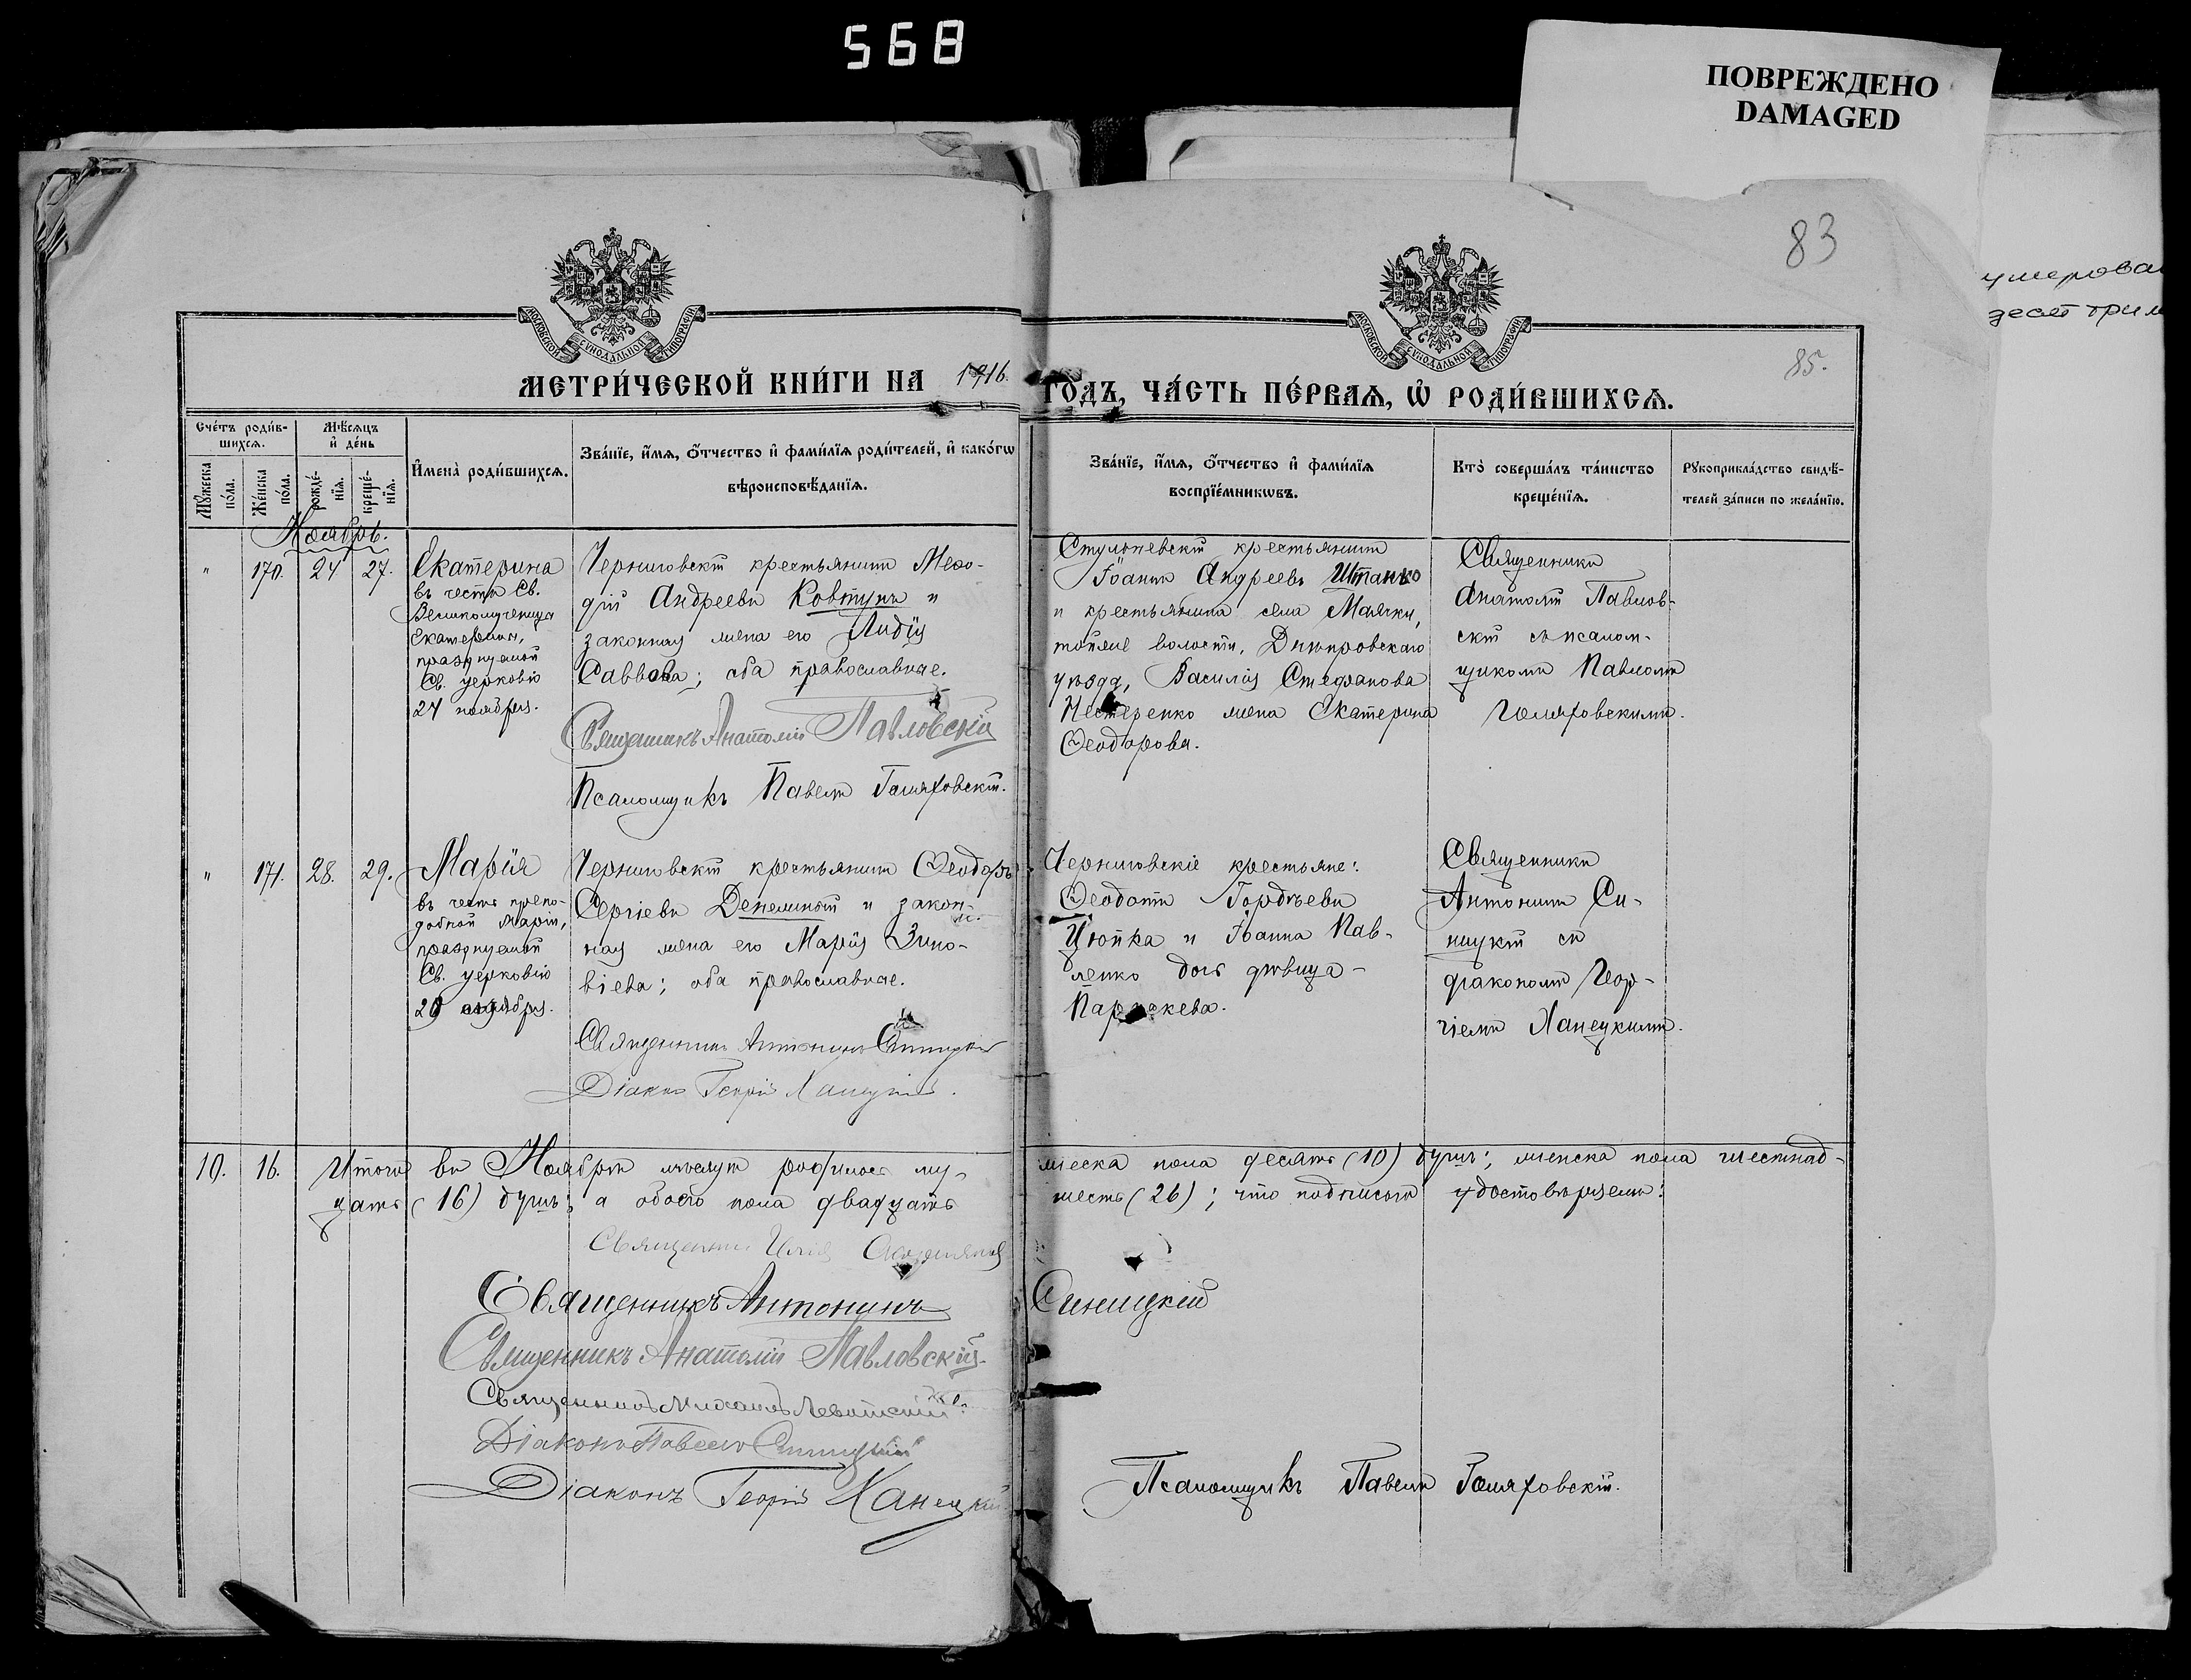 568
ПОВРЕЖДЕНО
DAMAGED
83
85.
умерова
десят три
МОСКОВСКОЙ СѴНОДАЛЬНОЙ ТИПОГРАФІИ
МОСКОВСКОЙ СѴНОДАЛЬНОЙ ТИПОГРАФІИ
МЕТРИ́ЧЕСКОЙ КНИ́ГИ НА 1916. ГО́ДЪ, ЧА́СТЬ ПЕ́РВАѦ, Ѡ҆ РОДИ́ВШИХСѦ.
Сче́тъ роди́в-
шихсѧ.
Мѣ́сѧцъ
и҆ де́нь
Мꙋ́жеска
по́ла.
Же́нска
по́ла.
рожде́-
нїѧ.
креще́-
нїѧ.
И҆мена̀ роди́вшихсѧ.
Зва́нїе, и҆́мѧ, ѻ҆́тчество и҆ фами́лїѧ роди́телей, и҆ како́гѡ
вѣроисповѣ́данїѧ.
Зва́нїе, и҆́мѧ, ѻ҆́тчество и҆ фами́лїѧ
воспрїе́мникѡвъ.
Кто̀ соверша́лъ та́инство
креще́нїѧ.
Рꙋкоприкла́дство свидѣ́-
телей за́писи по жела́нїю.
Ноябрь.
" 170. 24 27.
Екатерина
въ честь Св.
Великомученицы
Екатерины,
празднуемой
Св. церковію
24 ноября.
Черниговскій крестьянинъ Меѳо-
дій Андреевъ Ковтунъ и
законная жена его Лидія
Саввова; оба православные.
Священникъ Анатолій Павловскій
Псаломщикъ Павелъ Голяховскій.
крестьянинъ
Іоаннъ Андреевъ Штанько
и крестьянина села Маячки,
тойже волости, Днѣпровскаго
уѣзда, Василія Стефанова
Нестеренко жена Екатерина
Ѳеодорова.
Священникъ
Анатолій Павлов-
скій съ псалом-
щикомъ Павломъ
Голяховскимъ.
" 171. 28. 29.
Марія
въ честь препо-
добной Маріи,
празднуемой
Св. церковію
29
Черниговскій крестьянинъ Ѳеодоръ
Сергіевъ и закон-
ная жена его Марія Зино-
віева; оба православные.
Священникъ Антонинъ Синицкій
Діаконъ Георгій Ханецкій.
Черниговскіе крестьяне:
Ѳеодотъ Гордѣевъ
Цюпка и Іоанна Пав-
ленко дочь дѣвица
Параскева.
Священникъ
Антонинъ Си-
ницкій съ
діакономъ Геор-
гіемъ Ханецкимъ.
10. 16. Итого въ Ноябрѣ мѣсяцѣ родилось му-
жеска пола десять (10) душъ; женска пола шестнад-
цать (16) душъ; а обоего пола двадцать
шесть (26); что подписомъ удостовѣряемъ:
Священникъ Илія
Священникъ Антонинъ Синицкій
Священникъ Анатолій Павловскій
Священникъ Михаилъ Левитскій.
Діаконъ Павелъ Синицкій
Діаконъ Георгій Ханецкій
Псаломщикъ Павелъ Голяховскій.